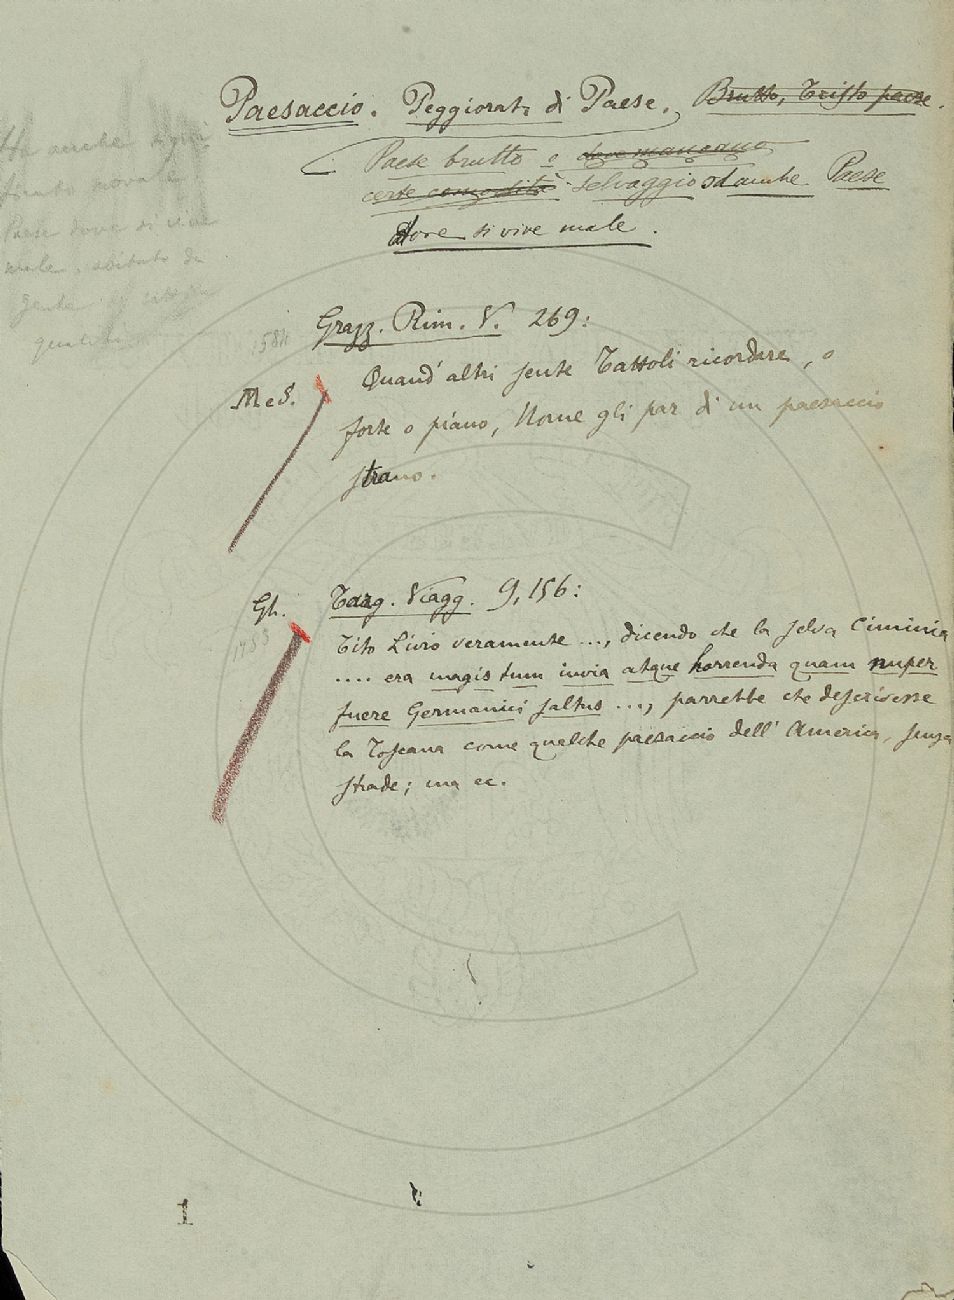 Paesaccio. Peggiorat. di Paese. Brutto, Tristo paese.
Paese brutto e dove mancano
certe comodità selvaggio ed anche Paese
dove si vive male.
Ha anche
Paese dove si vive
male, abitato da
gente
Grazz. Rim. V. 269:
1584
Med. Quand' altri sente Tattoli ricordare, o
forte o piano, Nome gli par di un paesaccio
strano.
Gh. Targ. Viagg. 9, 156:
Tito Livio veramente ..., dicendo che la selva Ciminia
.... era magis tum invia atque horrenda quam nuper
fuere Germanici saltus ..., parrebbe che descrivesse
la Toscana come qualche paesaccio dell' America, senza
strade; ma ec.
1